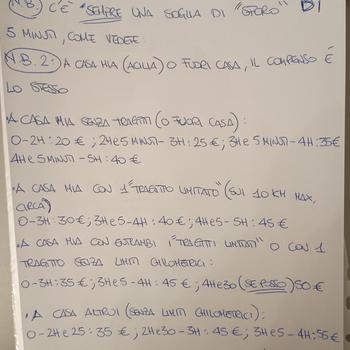 N.B.) C'È "SEMPRE UNA SOGLIA DI "SFORO" DI
5 MINUTI, COME VEDETE
N.B. 2: A CASA MIA (ACILIA) O FUORI CASA, IL COMPENSO È
LO STESSO
• A CASA MIA SENZA TRAGITTI (O FUORI CASA):
0-2H: 20 €; 2H e 5 MINUTI - 3H: 25 €; 3H e 5 MINUTI - 4H: 35€
4H e 5 MINUTI - 5H: 40 €
• A CASA MIA CON 1 "TRAGITTO LIMITATO" (SUI 10 KM MAX,
CIRCA)
0-3H: 30 €; 3H e 5 - 4H: 40 €; 4H e 5 - 5H: 45 €
• A CASA MIA CON ENTRAMBI I "TRAGITTI LIMITATI" O CON 1
TRAGITTO SENZA LIMITI CHILOMETRICI:
0-3H: 35 €; 3H e 5 - 4H: 45 €; 4H e 30 (SE POSSO) 50 €
• A CASA ALTRUI (SENZA LIMITI CHILOMETRICI):
0-2H e 25: 35 €; 2H e 30 - 3H: 45 €; 3H e 5 - 4H: 55 €